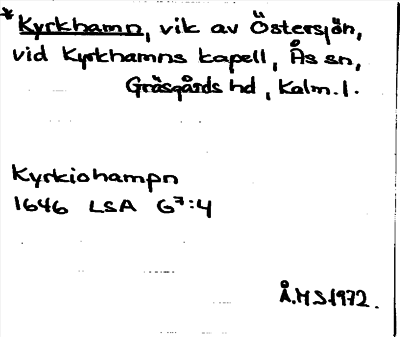 *Kyrkhamn, vik av Östersjön,
vid Kyrkhamns kapell, Ås sn,
Gräsgårds hd, Kalm. l.
Kyrkiohampn
1646 LSA G7:4
Å.M.S. 1972.